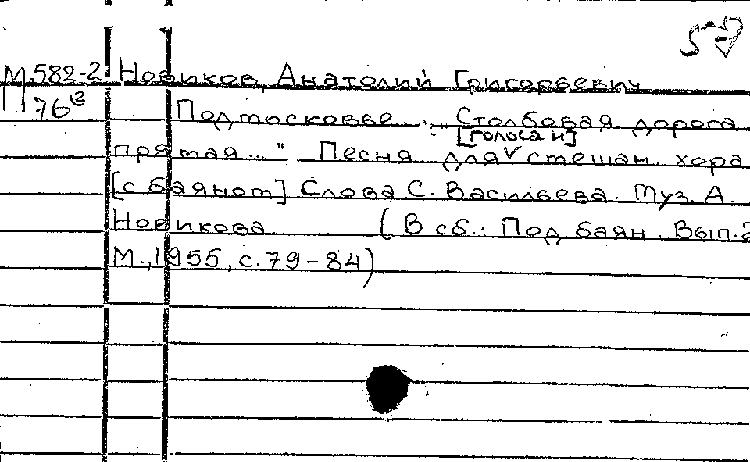 М.582-2 Новиков, Анатолий Григорьевич
76
Подмосковье. "Столбовая дорога
[голоса и]
прямая..." Песня для смешан. хора
[с баяном] Слова С. Васильева. Муз. А.
Новикова. (В сб.: Под баян. Вып.2
М., 1955, с.79-84)